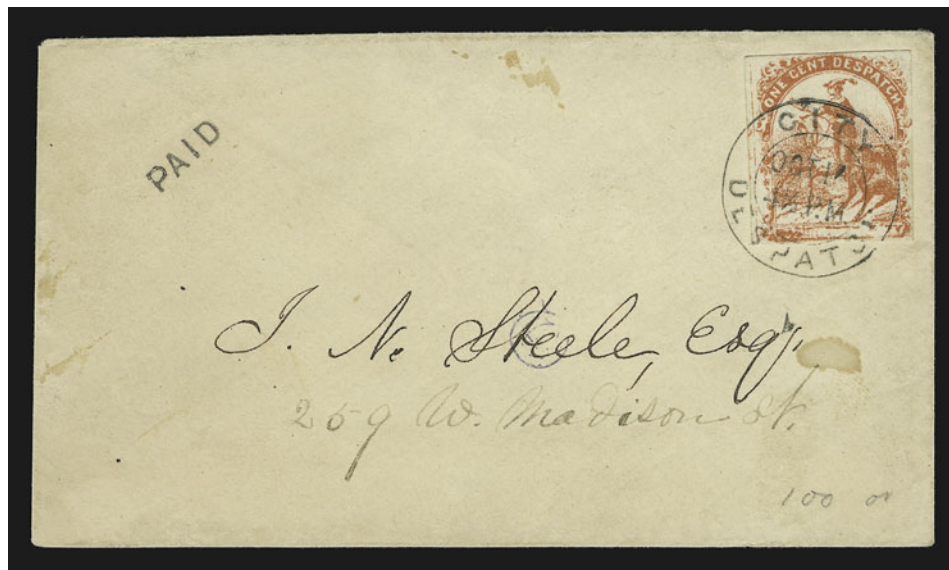 PAID
ONE CENT DESPATCH
CITY
P.M.
J. N. Steele, Esq.
259 W. Madison St.
100